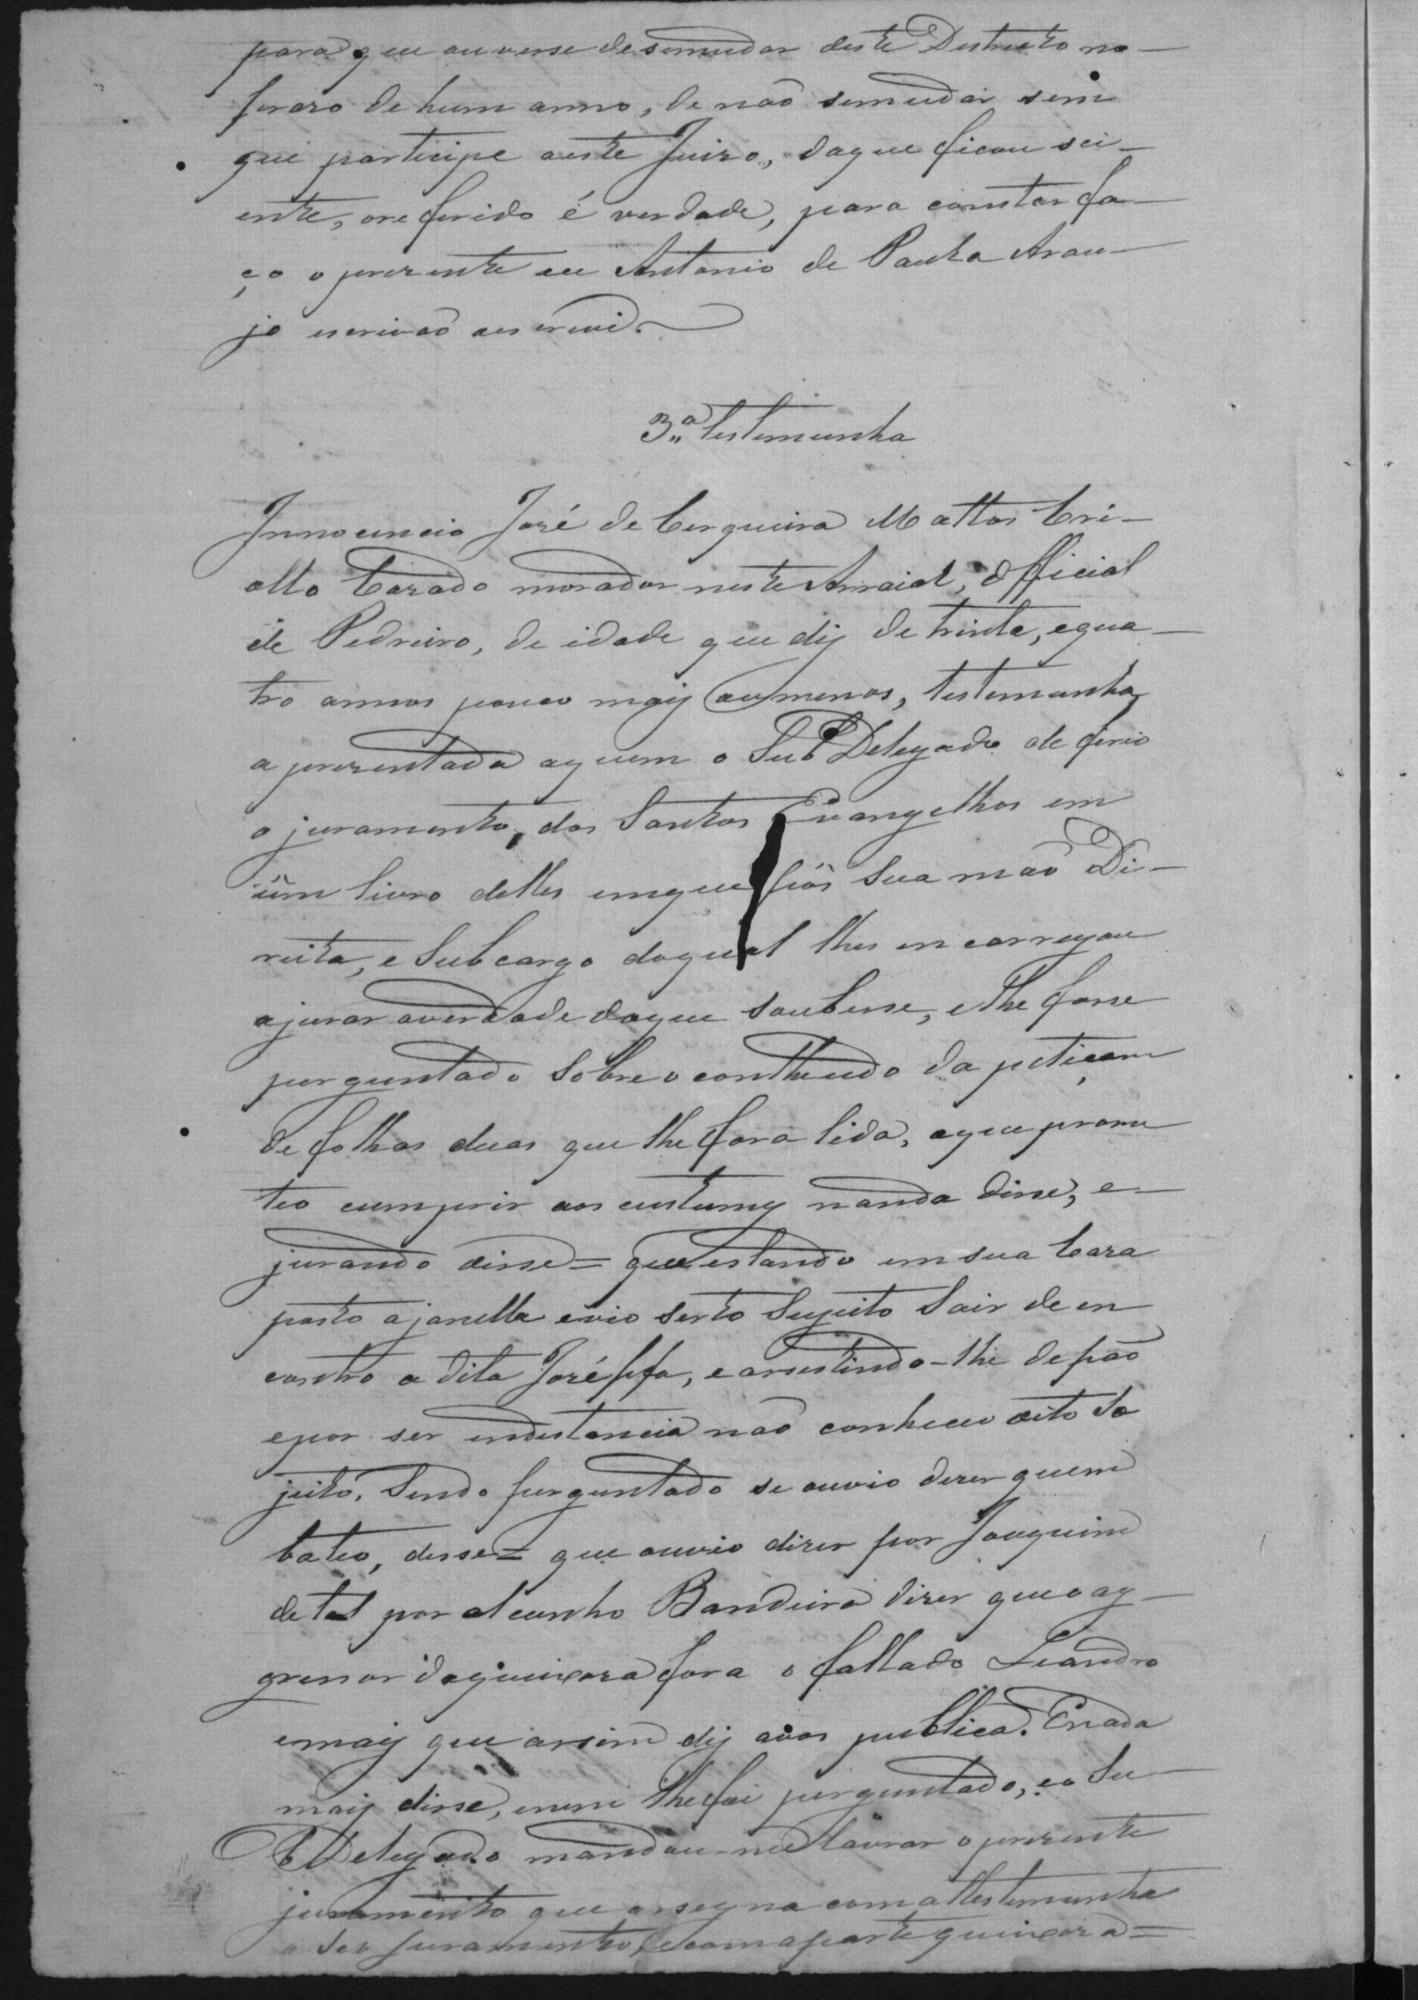 para que ouvese desemudar deste Destricto no
prazo de hum anno, de não semudar sem
que participe aeste Juizo, daque ficou sci-
ente, oreferido é verdade, para constar fa-
ço o prezente eu Antonio de Pauta Arau-
jo escrivão aescrevi.
3.ª testemunha
Innocencio José de Cerqueira Mattos Cri-
ollo Cazado morador neste Arraial, Official
de Pedreiro, de idade que diz de trinta, equa-
tro annos pouco maiz ou menos, testemunha
aprezentada aquem o SubDelegado deferio
o juramento, dos Santos Evangelhos em
üm livro delles emque pôs Sua mão Di-
reita, e Subcargo doqual lhes encarregou
ajurar averdade doque Soubesse, elhe fosse
perguntado Sobre oconthendo da petiçam
de folhas duas que lhe fora lida, aque prome
teo cumprir aos custumes nanda disse, e
jurando disse = que estando em sua Caza
posto ajanella evio serto Sugeito Sair de en
contro a dita Joséffa, easestindo-lhe depáo
epor ser endistancia não conheceo dito So
jeito. Sendo perguntado se ouvio dizer quem
bateo, disse = que ouvio dizer por Joaquim
detal por alcunho Bandeira dizer que o ag-
gressor daqueixoza fora o fallado Leandro
emaiz que assim diz avos publica. Enada
maiz disse, enem lhe foi perguntado, eo Su
bDelegado mandou-me lavrar o prezente
juramento que assegna comatestemunha
o seo juramento, ecomaparte queixoza =